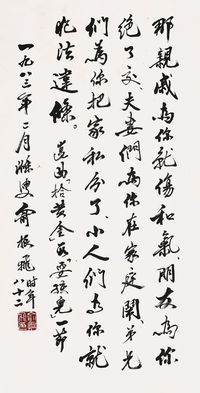 那親戚為你就傷和氣,朋友為你
絕了交,夫妻們為你在家庭鬧,弟兄
們為你把家私分了,小人們為你就
犯法違條。崑曲"拾黃金"耍孩兒一節
一九八三年二月滌叟俞振飛时年八十二